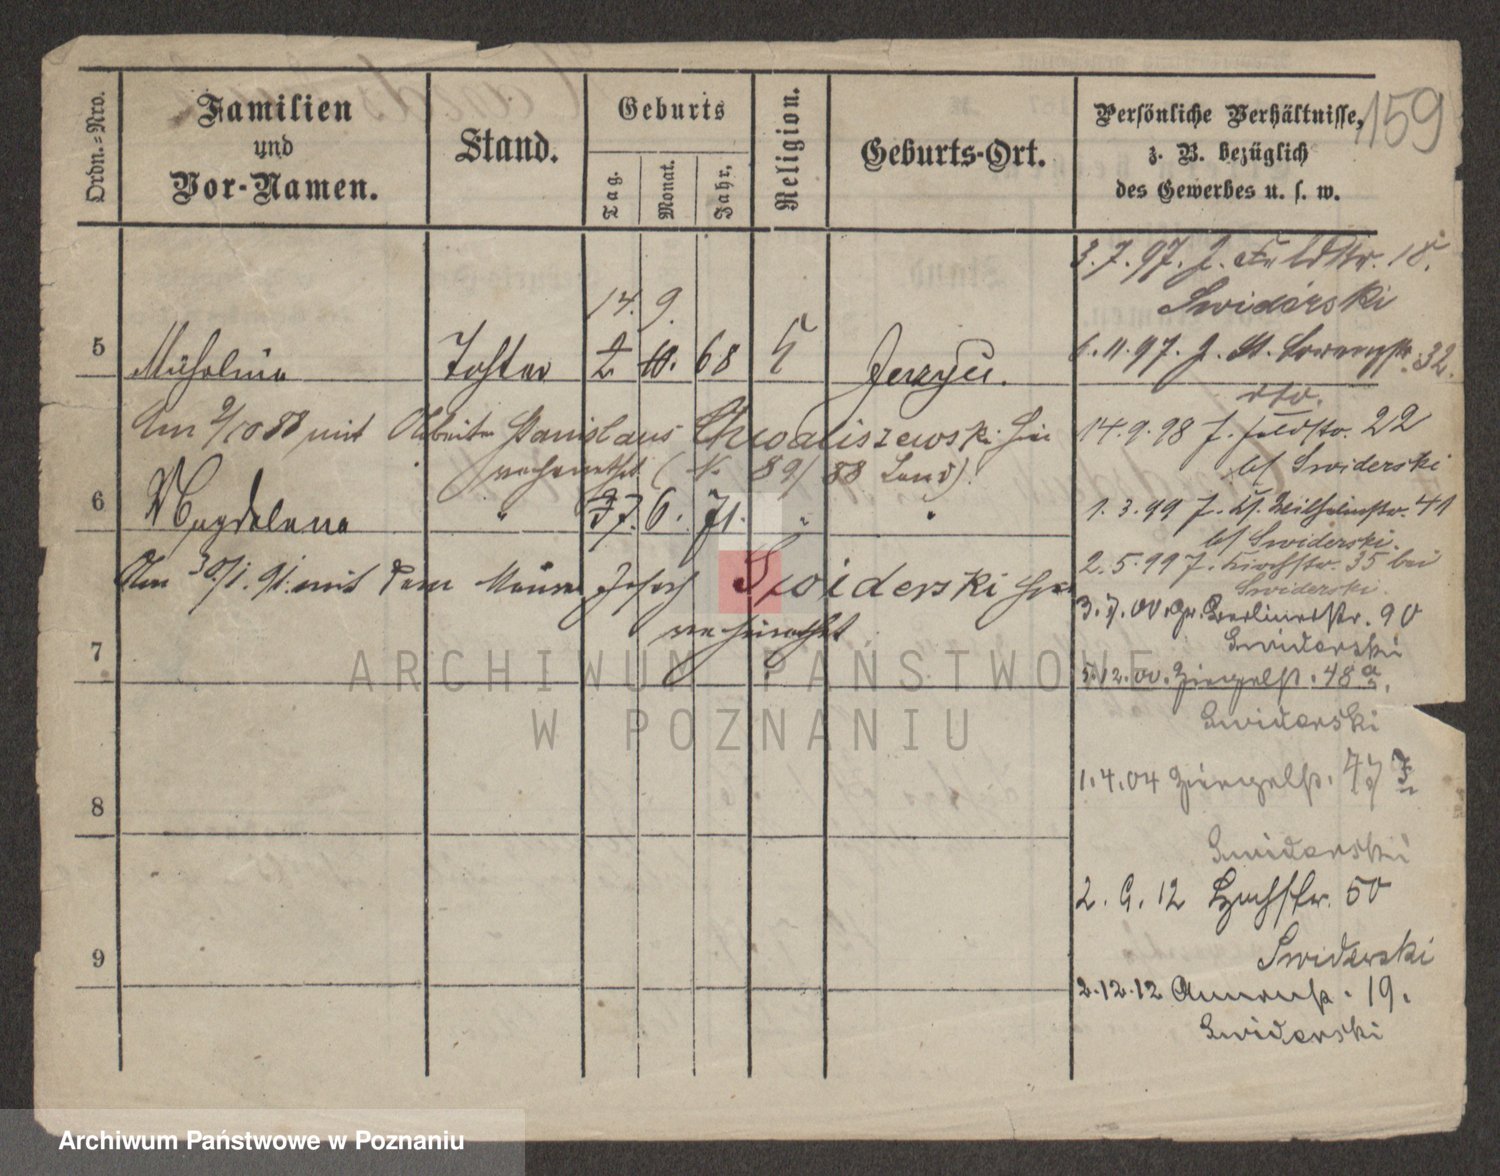 159
Ordn.-Nro.
Familien
und
Vor-Namen.
Stand.
Geburts
Tag.
Monat.
Jahr.
Religion.
Geburts-Ort.
Persönliche Verhältnisse,
z. B. bezüglich
des Gewerbes u. s. w.
3.7.97. J. Feldstr. 18.
Swiderski
14. 9.
5 Michalina Tochter 2 10. 68 Jerzyce.
6.11.97. J. 32.
dto.
Am 9/10 88 mit Arbeiter Stanislaus Chwaliszewski hier
verheirathet (N. 89/88 Land).
14.9.98 J. Feldstr. 22
b/ Swiderski
6 Magdalena " 6. 71. " "
1.3.99 J. Kl. Wilhelmstr. 41
b/ Swiderski.
Am 30/1. 91. mit dem Maurer Joseph Swiderski hier
verheirathet
2.5.99 J. Kirchstr. 35 bei
Swiderski.
3.7.00. Gr. Berlinerstr. 90
Swiderski
7
5.12.00. Ziegelst. 48 a.
Swiderski
8
1.4.04 Ziegelst.
Swiderski
2. 9. 12 Hochstr. 50
Swiderski
9
2.12.12 Annenst. 19.
Swiderski
ARCHIWUM PAŃSTWOWE
W POZNANIU
Archiwum Państwowe w Poznaniu